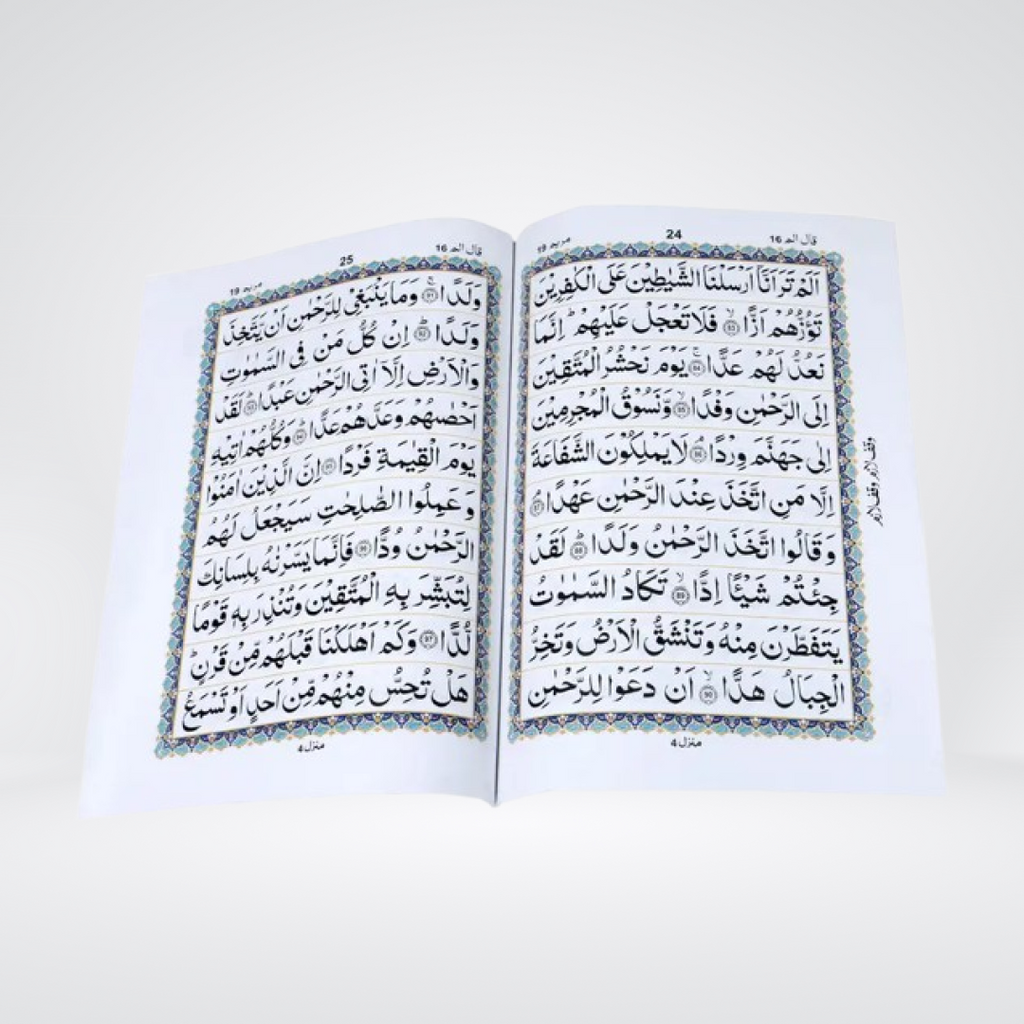 مریم 19 24 قال الم 16
اَلَمْ تَرَ اَنَّاۤ اَرْسَلْنَا الشَّيٰطِيْنَ عَلَى الْكٰفِرِيْنَ
تَؤُزُّهُمْ اَزًّا ۙ﴿83﴾ فَلَا تَعْجَلْ عَلَيْهِمْ ؕ اِنَّمَا
نَعُدُّ لَهُمْ عَدًّا ۚ﴿84﴾ يَوْمَ نَحْشُرُ الْمُتَّقِيْنَ
اِلَى الرَّحْمٰنِ وَفْدًا ۙ﴿85﴾ وَّنَسُوْقُ الْمُجْرِمِيْنَ
اِلٰى جَهَنَّمَ وِرْدًا ۘ﴿86﴾ لَا يَمْلِكُوْنَ الشَّفَاعَةَ
اِلَّا مَنِ اتَّخَذَ عِنْدَ الرَّحْمٰنِ عَهْدًا ۘ﴿87﴾
وَقَالُوا اتَّخَذَ الرَّحْمٰنُ وَلَدًا ؕ﴿88﴾ لَقَدْ
جِئْتُمْ شَيْـًٔا اِدًّا ۙ﴿89﴾ تَكَادُ السَّمٰوٰتُ
يَتَفَطَّرْنَ مِنْهُ وَتَنْشَقُّ الْاَرْضُ وَتَخِرُّ
الْجِبَالُ هَدًّا ۙ﴿90﴾ اَنْ دَعَوْا لِلرَّحْمٰنِ
منزل 4
وقف لازم وقف لازم
مریم 19 25 قال الم 16
وَلَدًا ۚ﴿91﴾ وَمَا يَنْۢبَغِيْ لِلرَّحْمٰنِ اَنْ يَّتَّخِذَ
وَلَدًا ؕ﴿92﴾ اِنْ كُلُّ مَنْ فِي السَّمٰوٰتِ
وَالْاَرْضِ اِلَّاۤ اٰتِي الرَّحْمٰنِ عَبْدًا ؕ﴿93﴾ لَقَدْ
اَحْصٰىهُمْ وَعَدَّهُمْ عَدًّا ؕ﴿94﴾ وَكُلُّهُمْ اٰتِيْهِ
يَوْمَ الْقِيٰمَةِ فَرْدًا ﴿95﴾ اِنَّ الَّذِيْنَ اٰمَنُوْا
وَعَمِلُوا الصّٰلِحٰتِ سَيَجْعَلُ لَهُمُ
الرَّحْمٰنُ وُدًّا ﴿96﴾ فَاِنَّمَا يَسَّرْنٰهُ بِلِسَانِكَ
لِتُبَشِّرَ بِهِ الْمُتَّقِيْنَ وَتُنْذِرَ بِهٖ قَوْمًا
لُّدًّا ﴿97﴾ وَكَمْ اَهْلَكْنَا قَبْلَهُمْ مِّنْ قَرْنٍ ؕ
هَلْ تُحِسُّ مِنْهُمْ مِّنْ اَحَدٍ اَوْ تَسْمَعُ
منزل 4